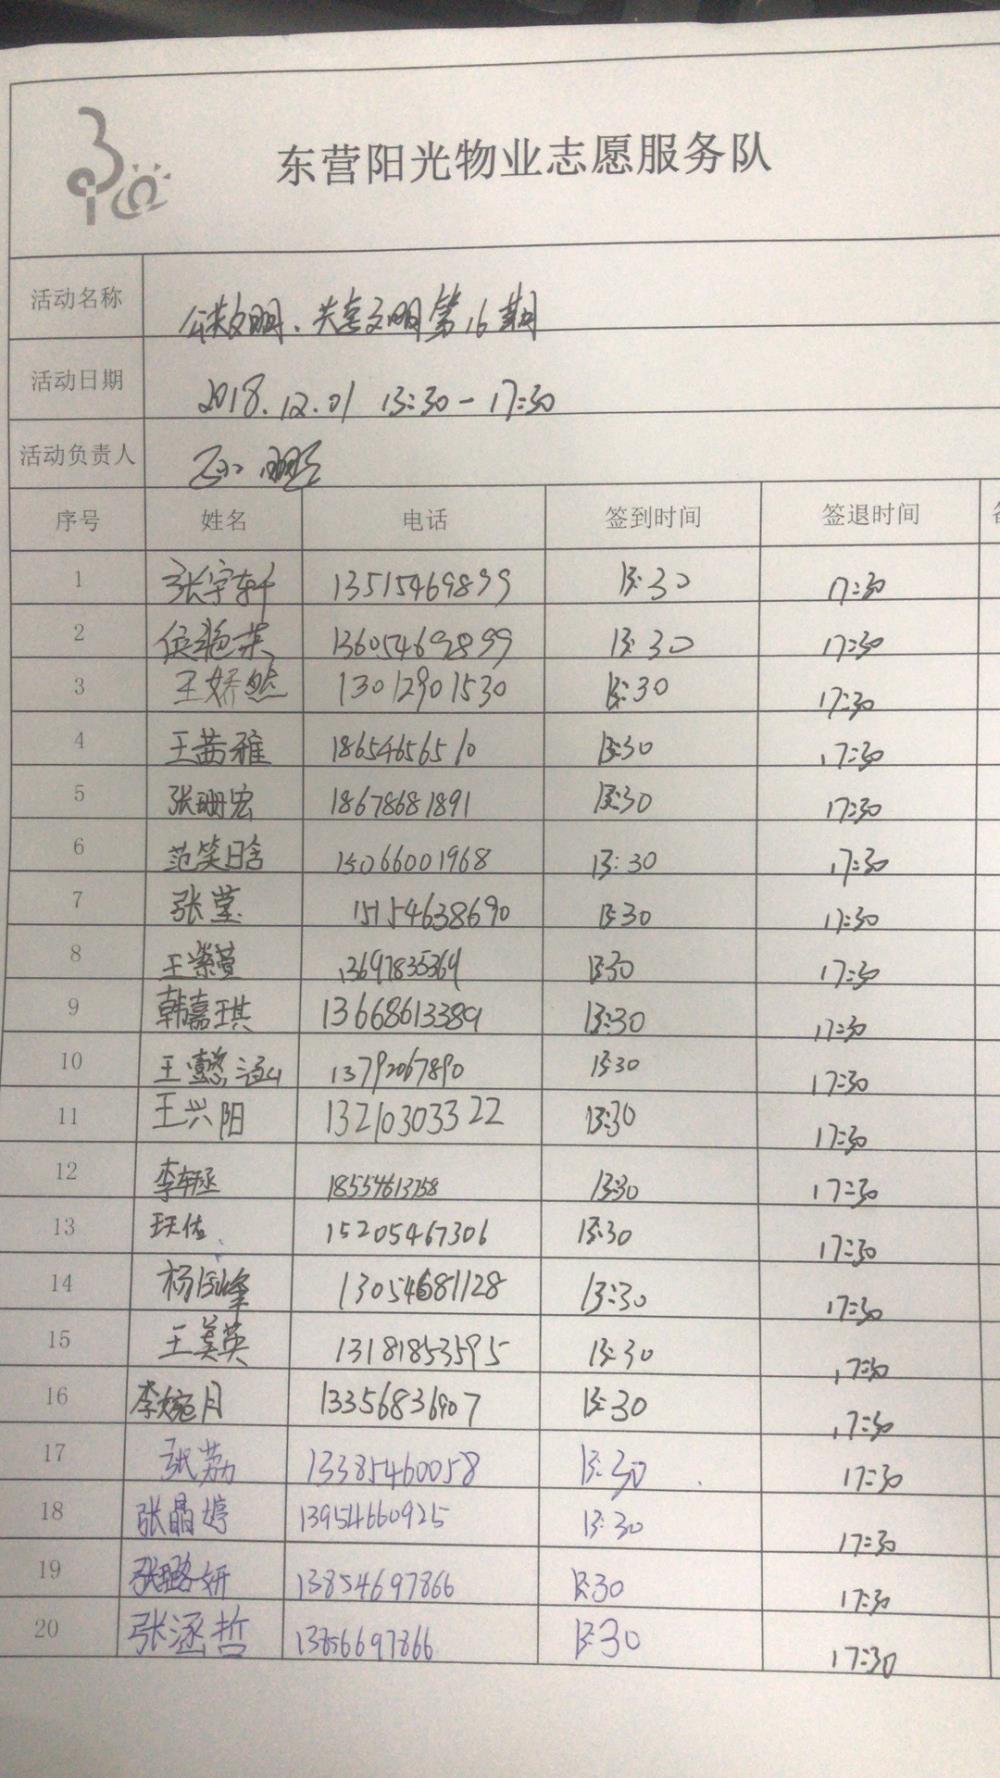 东营阳光物业志愿服务队
活动名称 公共文明、关窗文明第16期
活动日期 2018.12.01 13:30-17:30
活动负责人
序号 姓名 电话 签到时间 签退时间
1 张宇轩 13515469899 13:30 17:30
2 13605469899 13:30 17:30
3 王娇然 13012901530 13:30 17:30
4 王茜雅 18654656510 13:30 17:30
5 张珊宏 18678681891 13:30 17:30
6 范笑晗 15066001968 13:30 17:30
7 张莹 15154638690 13:30 17:30
8 王紫萱 13697835369 13:30 17:30
9 韩嘉琪 13668613389 13:30 17:30
10 王懿涵 13792067890 13:30 17:30
11 王兴阳 13210303322 13:30 17:30
12 李轩丞 18554613758 13:30 17:30
13 15205467306 13:30 17:30
14 杨国峰 13054681128 13:30 17:30
15 王美英 13181853595 13:30 17:30
16 李婉月 13356836907 13:30 17:30
17 张荔 13385460058 13:30 17:30
18 张晶婷 13954660925 13:30 17:30
19 张璐妍 13854697866 13:30 17:30
20 张涵哲 13856697866 13:30 17:30